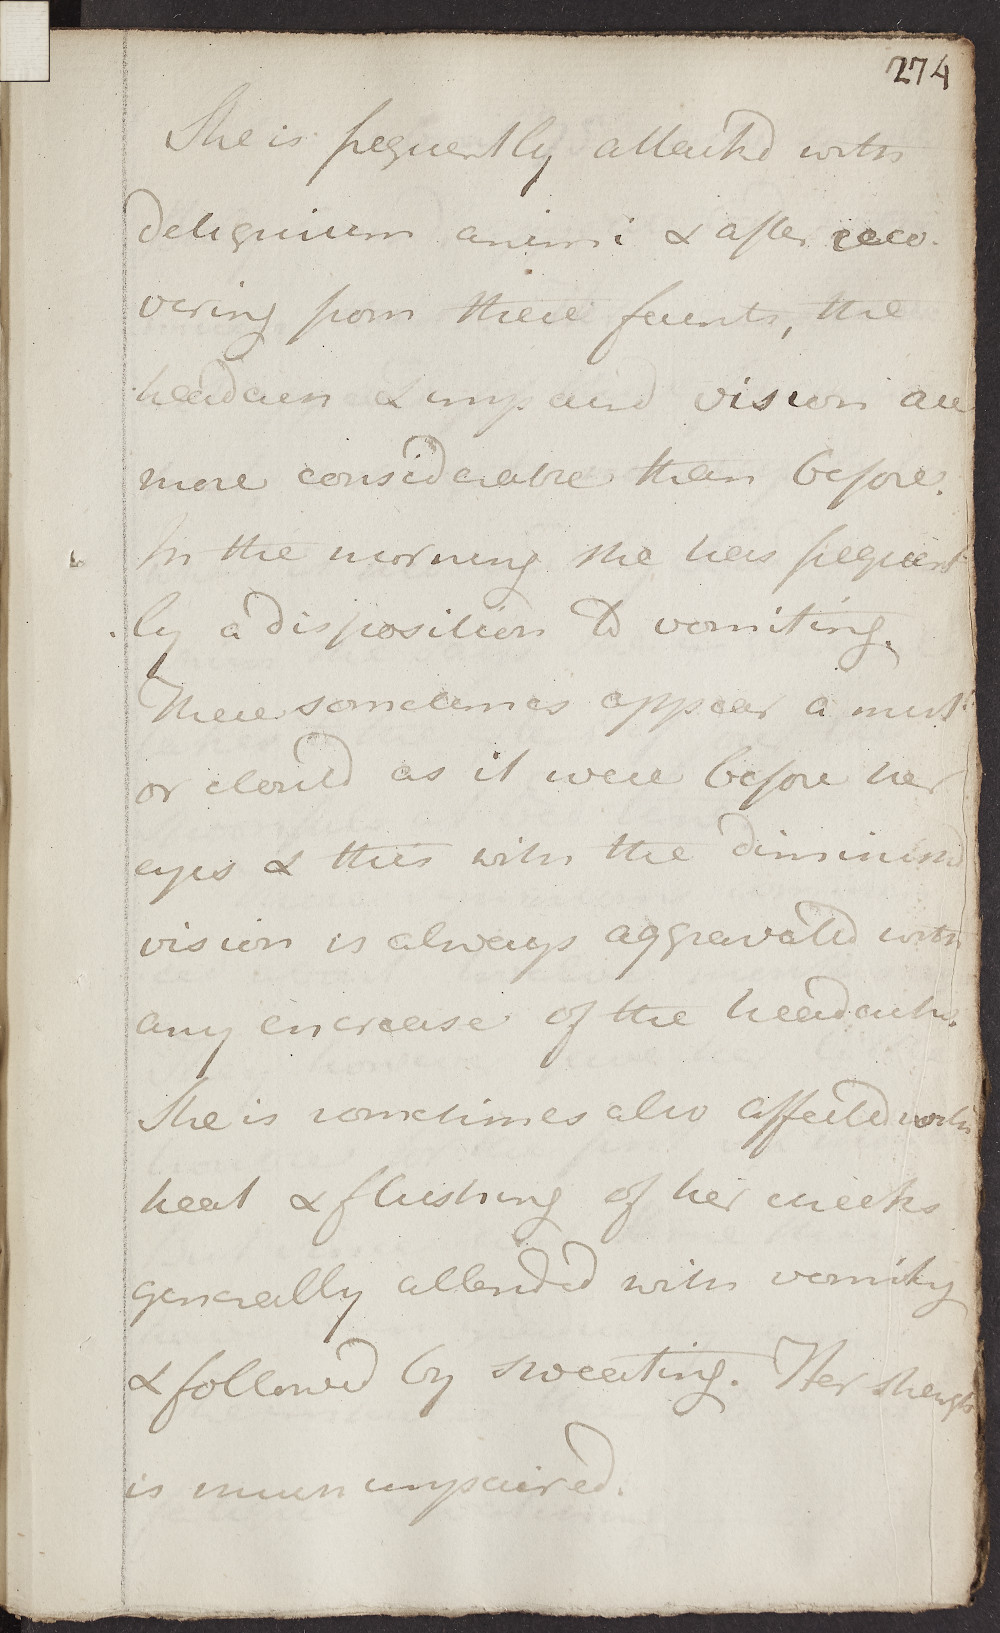 274
She is frequently attack'd with
deliquium animi & after reco-
vering from these faints, the
headach & impaired vision are
more considerable than before.
In the morning she has frequent-
ly a disposition to vomiting.
There sometimes appear a mist
or cloud as it were before her
eyes & this with the diminish'd
vision is always aggravated with
any encrease of the headachs.
She is sometimes also affected with
heat & flushing of her cheeks
generally attended with vomiting
& followed by sweating. Her strength
is much impaired.